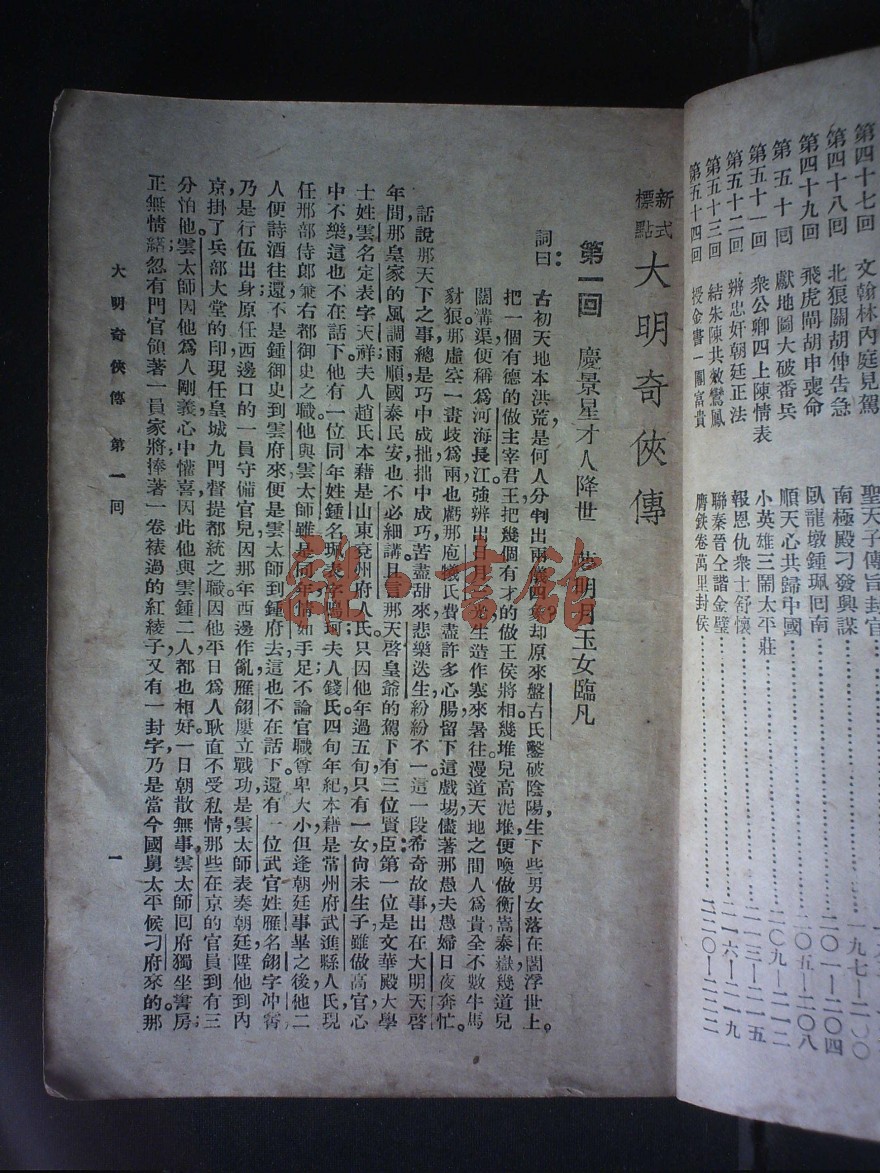 第四十七回 文翰林內庭見駕 聖天子傳旨封官
第四十八回 北狼關胡申告急 南極殿刁發興謀 二〇一—二〇四
第四十九回 飛虎閘胡申喪命 臥龍墩鍾珮回南 二〇五—二〇八
第五十回 獻地圖大破番兵 順天心共歸中國 二〇九—二一二
第五十一回 衆公卿四上陳情表 小英雄三鬧太平莊 二一三—二一五
第五十二回 辨忠奸朝廷正法 報恩仇衆士舒懷 二一六—二一九
第五十三回 結朱陳共效鸞鳳 聯秦晉仝諧金璧
第五十四回 授金書一門富貴 膺鉄卷萬里封侯 二二〇—二二二
新式標點 大明奇俠傳
第一回 慶景星才人降世 夢明月玉女臨凡
詞曰：古初天地本洪荒是何人分判出兩儀四象却原來盤古氏鑿破陰陽，生下些男女落在閻浮世上。
把一個有德的做主宰君王把幾個有才的做王侯將相。幾堆兒高泥堆，便喚做衡嵩泰嶽幾道兒
闊溝渠便稱爲河海長江。強辨出日月三光生造作寒來暑往漫道天地之間人爲貴全不數牛馬
豺狼，那虛空一畫歧爲兩也虧那庖犧氏費盡許多心腸留下這戲場儘著那愚夫愚婦日夜奔忙。
話說那天下之事總是巧中成拙拙中成巧苦盡甜來悲樂迭生紛紛不一。這一段希奇故事出在大明天啓
年間，那皇家的風調雨順國泰民安也不必細講。且言那天啓皇爺的駕下有三位賢臣：第一位是文華殿大學
士姓雲名定表字天祥夫人趙氏本藉是山東兗州府人氏只因他年過五旬只有一女尙未生子雖做高官心
中不樂這也不在話下。他有一位同年姓鍾名珮表字鳴珂，夫人錢氏四旬年紀本藉是常州府武進縣人氏現
任邢部侍郎兼右都御史之職他與雲太師雖是同年情如手足不論官職尊卑大小但逢朝廷事畢之後他二
人便詩酒往還不是鍾御史到雲府來便是雲太師到鍾府去這也不在話下。還有一位武官姓雁名翎字冲霄
乃是行伍出身原任西邊口的一員守備官兒因那年西邊作亂雁翎屢立戰功是雲太師表奏朝廷陞他到內
京掛了兵部大堂的印現任皇城九門督提都統之職因他平日爲人耿直不受私情，那些在京的官員到有三
分怕他。雲太師因他爲人剛義，心中懽喜因此他與雲鍾二人都也相好。一日朝散無事，雲太師回府獨坐書房
正無情緒忽有門官領著一員家將捧著一卷裱過的紅綾子又有一封字乃是當今國舅太平侯刁府來的。那
大明奇俠傳 第一回 一
雜·書館